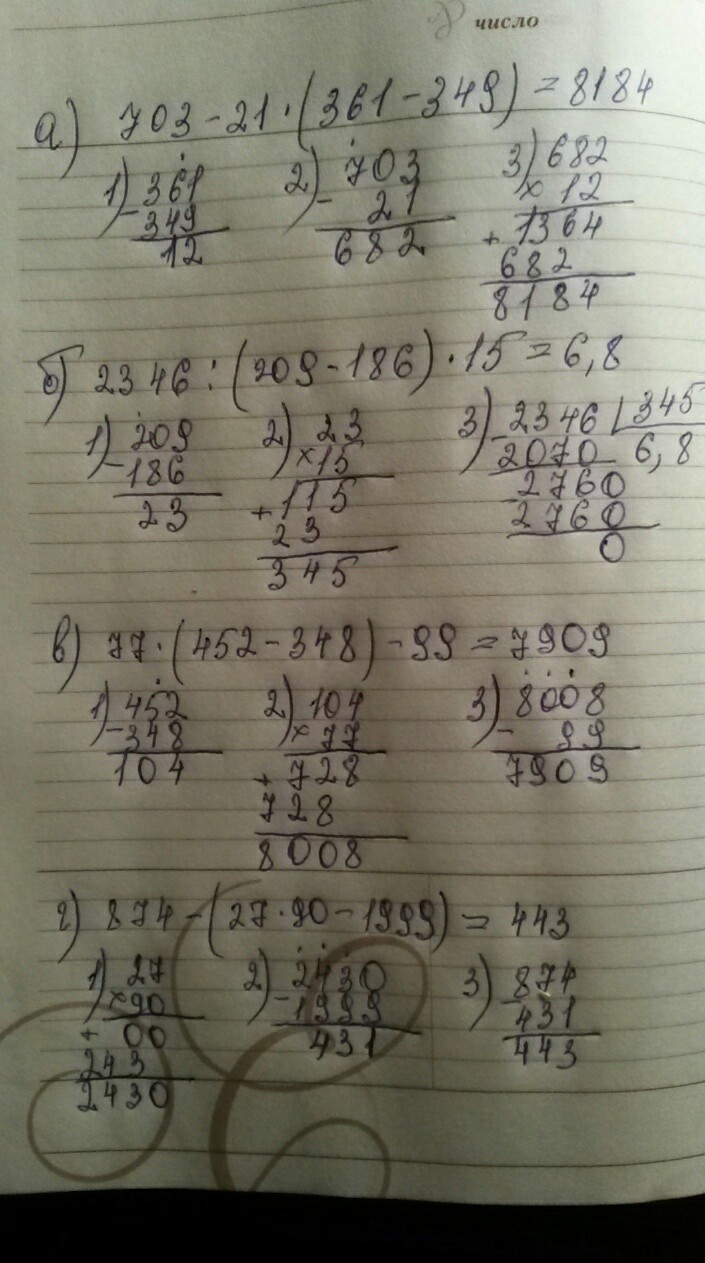 число
а) 703 - 21 · (361 - 349) = 8184
1) 361 2) 703 3) 682
- 349 - 21 × 12
12 682 + 1364
682
8184
б) 2346 : (209 - 186) · 15 = 6,8
1) 209 2) 23 3) - 2346 | 345
- 186 × 15 2070 6,8
23 + 115 - 2760
23 2760
345 0
в) 77 · (452 - 348) - 99 = 7909
1) 452 2) 104 3) 8008
- 348 × 77 - 99
104 + 728 7909
728
8008
г) 874 - (27 · 90 - 1999) = 443
1) 27 2) 2430 3) 874
× 90 - 1999 - 431
+ 00 431 443
243
2430